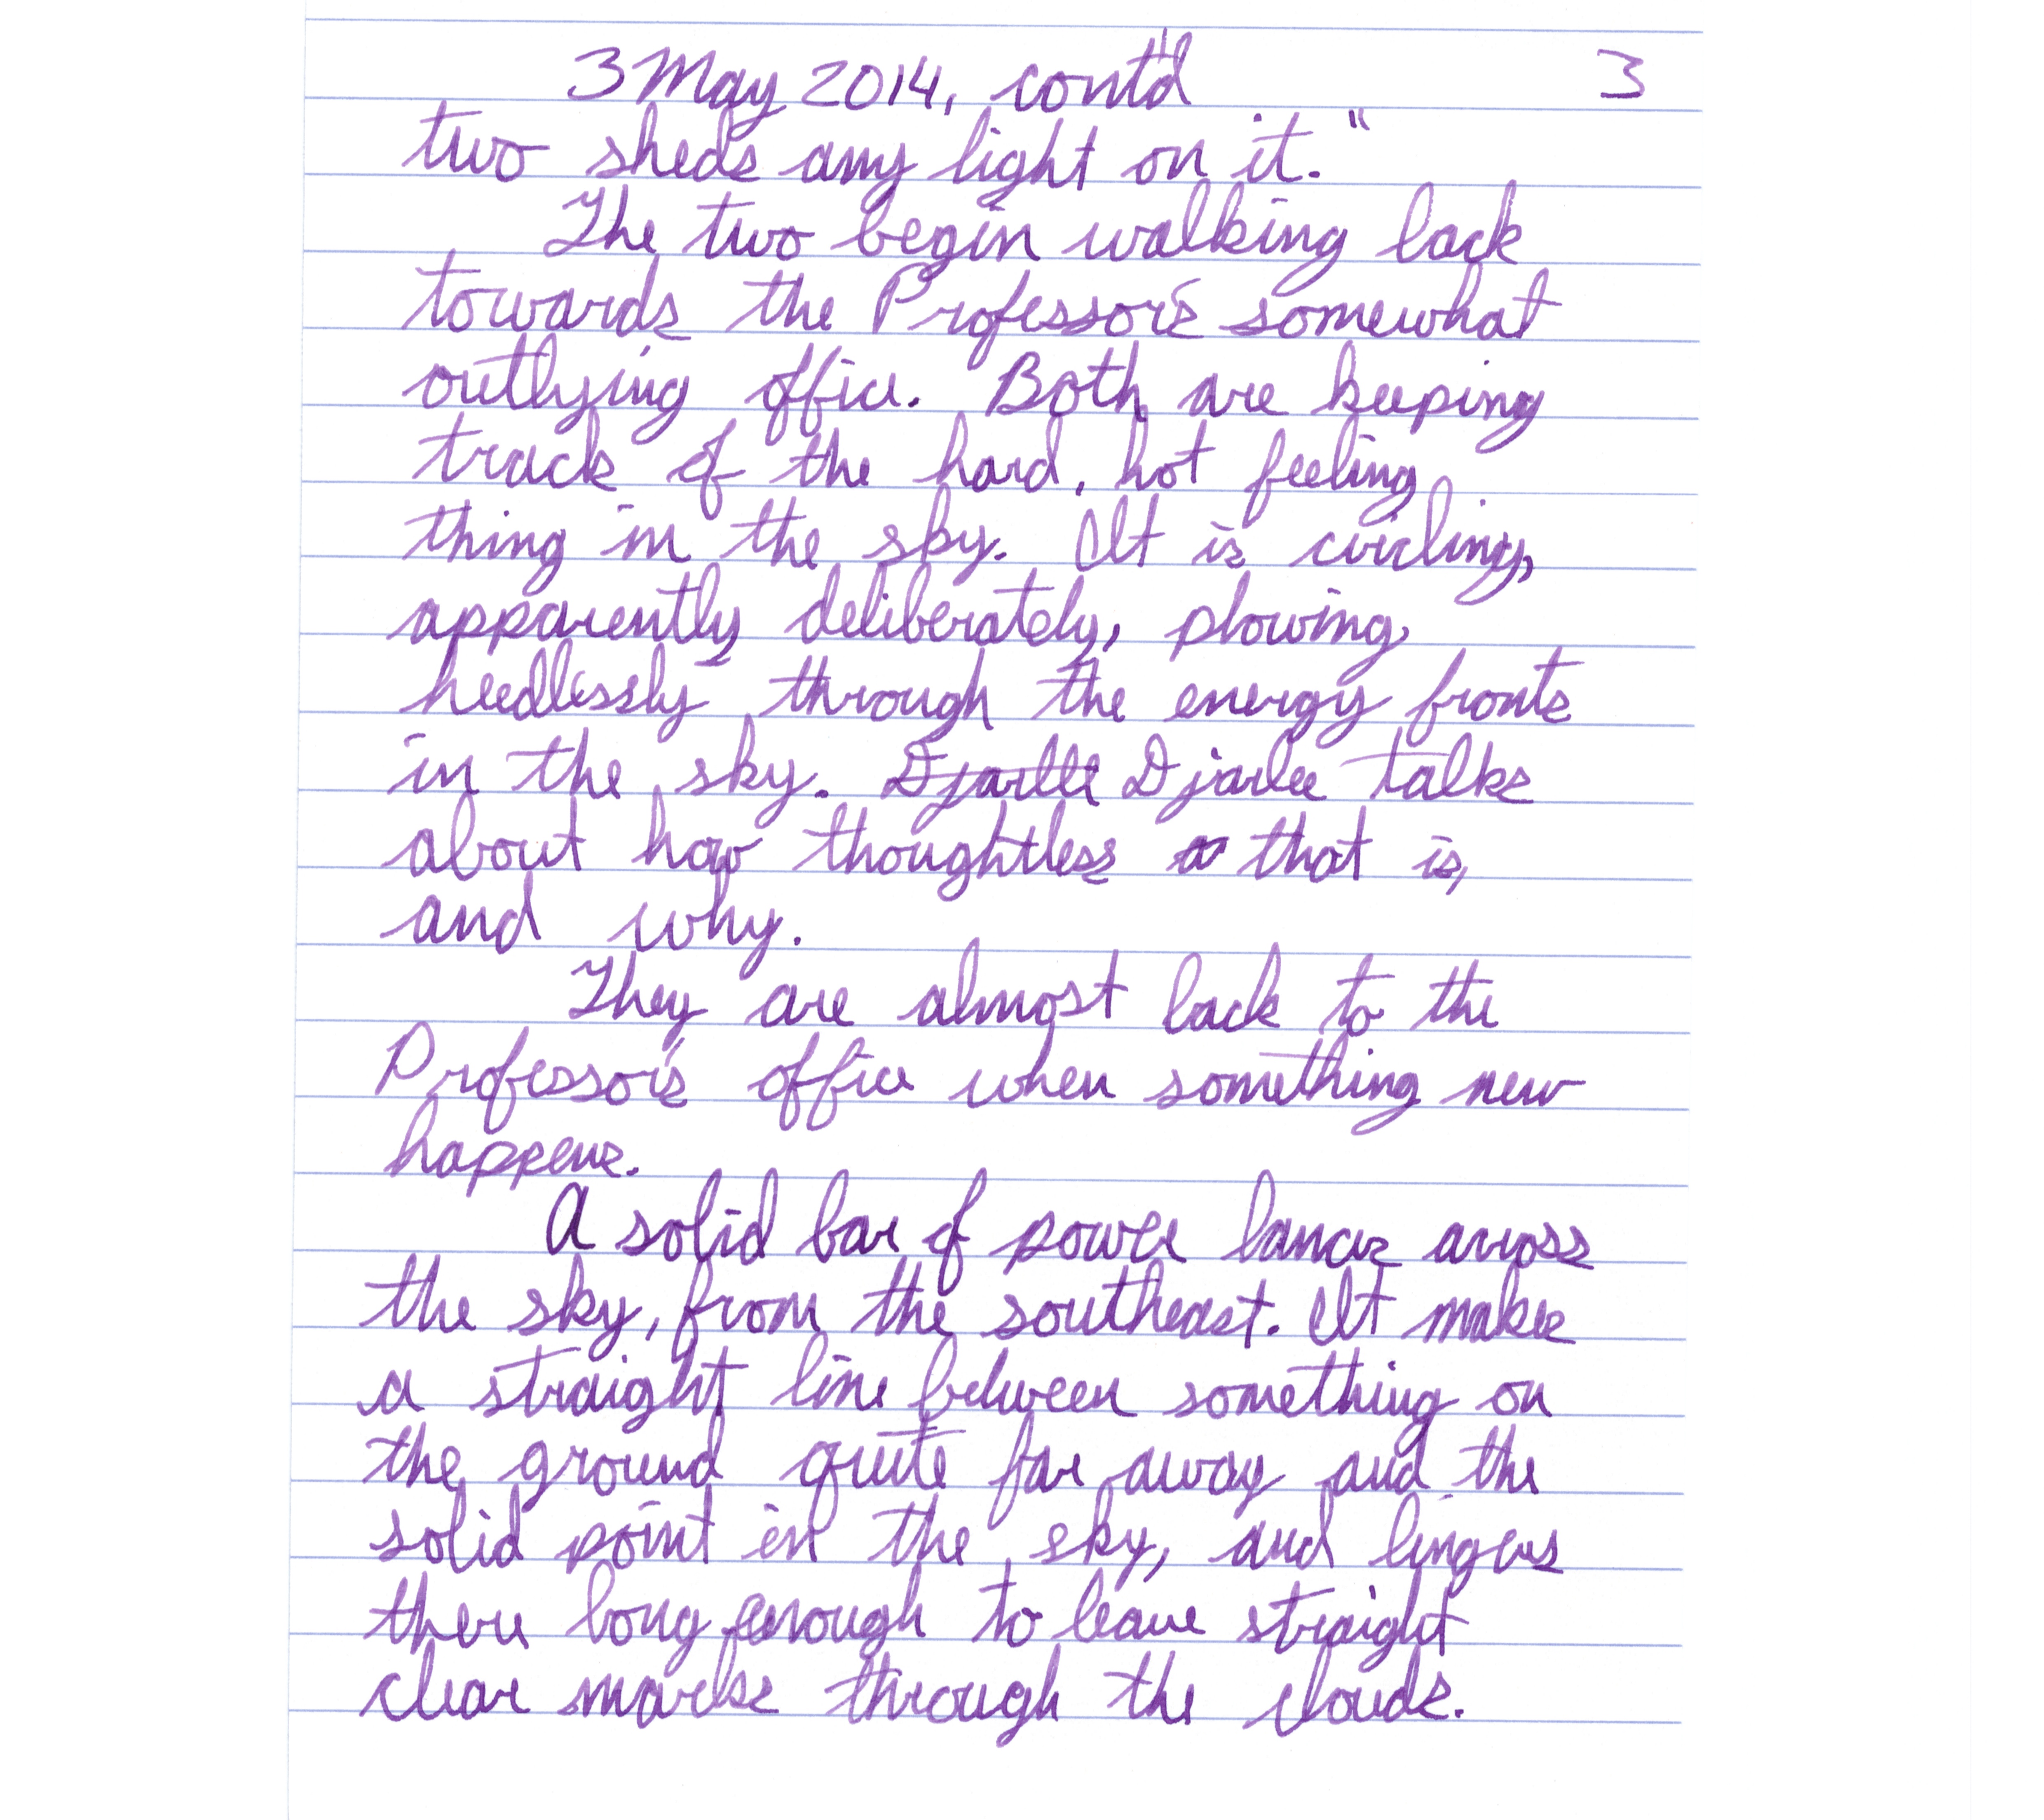 3 May 2014, cont'd 3
two sheds any light on it."
The two begin walking back
towards the Professor's somewhat
outlying office. Both are keeping
track of the hard, hot feeling
thing in the sky. It is circling,
apparently deliberately, plowing
heedlessly through the energy fronts
in the sky. Djarlle Djarlee talks
about how thoughtless that is,
and why.
They are almost back to the
Professor's office when something new
happens.
A solid bar of power lances across
the sky, from the southeast. It makes
a straight line between something on
the ground quite far away and the
solid point in the sky, and lingers
there long enough to leave straight
clear marks through the clouds.